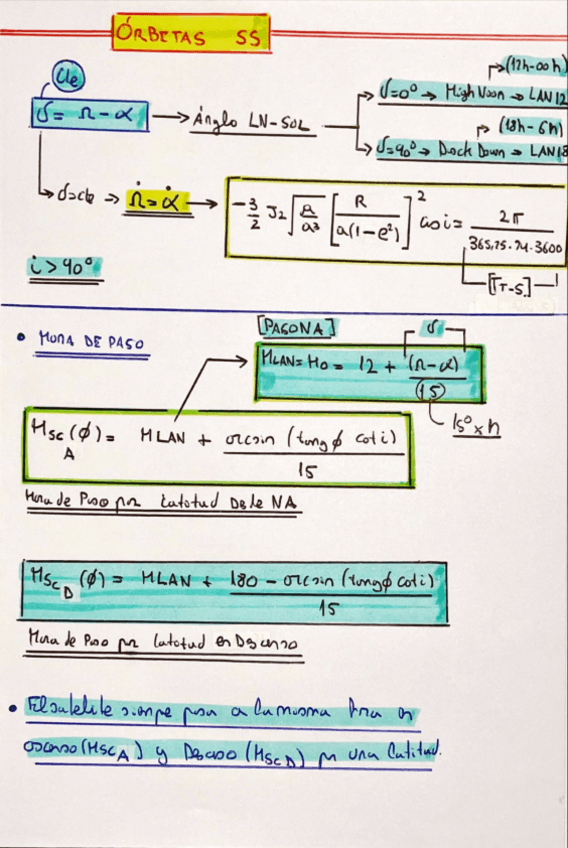 ÓRBETAS SS
Cte
(12h-00h)
σ = Ω - α → Ánglo LN-SOL
σ=0° → High Noon → LAN12
(18h-6h)
σ=90° → Dack Down → LAN18
σ=cte → Ω̇ = α̇ → -3/2 J₂ √(μ/a³) [R/a(1-e²)]² cos i = 2π/365,25·24·3600
i > 90°
[TT-S]
• HORA DE PASO
[PASO NA]
σ
HLAN = H0 = 12 + (Ω-α)/(15)
15° x h
HSC_A (ϕ) = HLAN + arcsin (tang ϕ cot i)/15
Hora de Paso por Latotud Desde NA
HSC_D (ϕ) = HLAN + 180 - arcsin (tang ϕ cot i)/15
Hora de Paso por Latotud en Descenso
• El satelite siempre pasa a la misma hora en
ascenso (HSC_A) y Descaso (HSC_D) por una Latitud.